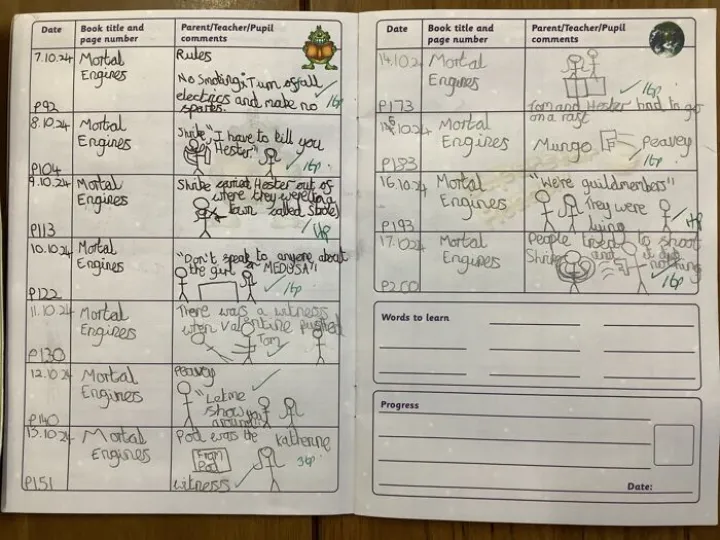 Date
Book title and
page number
Parent/Teacher/Pupil
comments
7.10.24
P92
Mortal
Engines
Rules
No Smoking, Turn off all
electrics and make no
sparks.
1hp
8.10.24
P104
Mortal
Engines
Shrike "I have to kill you
Hester."
1hp
9.10.24
P113
Mortal
Engines
Shrike carried Hester out of
where they were (in a
town called
10.10.24
P122
Mortal
Engines
"Don't speak to anyone about
the girl or MEDUSA"!
1hp
11.10.24
P130
Mortal
Engines
There was a witness
when Valentine pushed
Tom
12.10.24
P140
Mortal
Engines
Peavey
"Let me
show you
around"
13.10.24
P151
Mortal
Engines
Pod was the
witness
From
Pod
Katherine
3hp
Date
Book title and
page number
Parent/Teacher/Pupil
comments
14.10.24
P173
Mortal
Engines
1hp
Tom and Hester had to go
on a raft
15.10.24
P183
Mortal
Engines
Mungo
Peavey
1hp
16.10.24
P193
Mortal
Engines
"We're guildmembers"
They were
lying
17.10.24
P200
Mortal
Engines
People tried to shoot
Shrike and it did
nothing
1hp
Words to learn
Progress
Date: